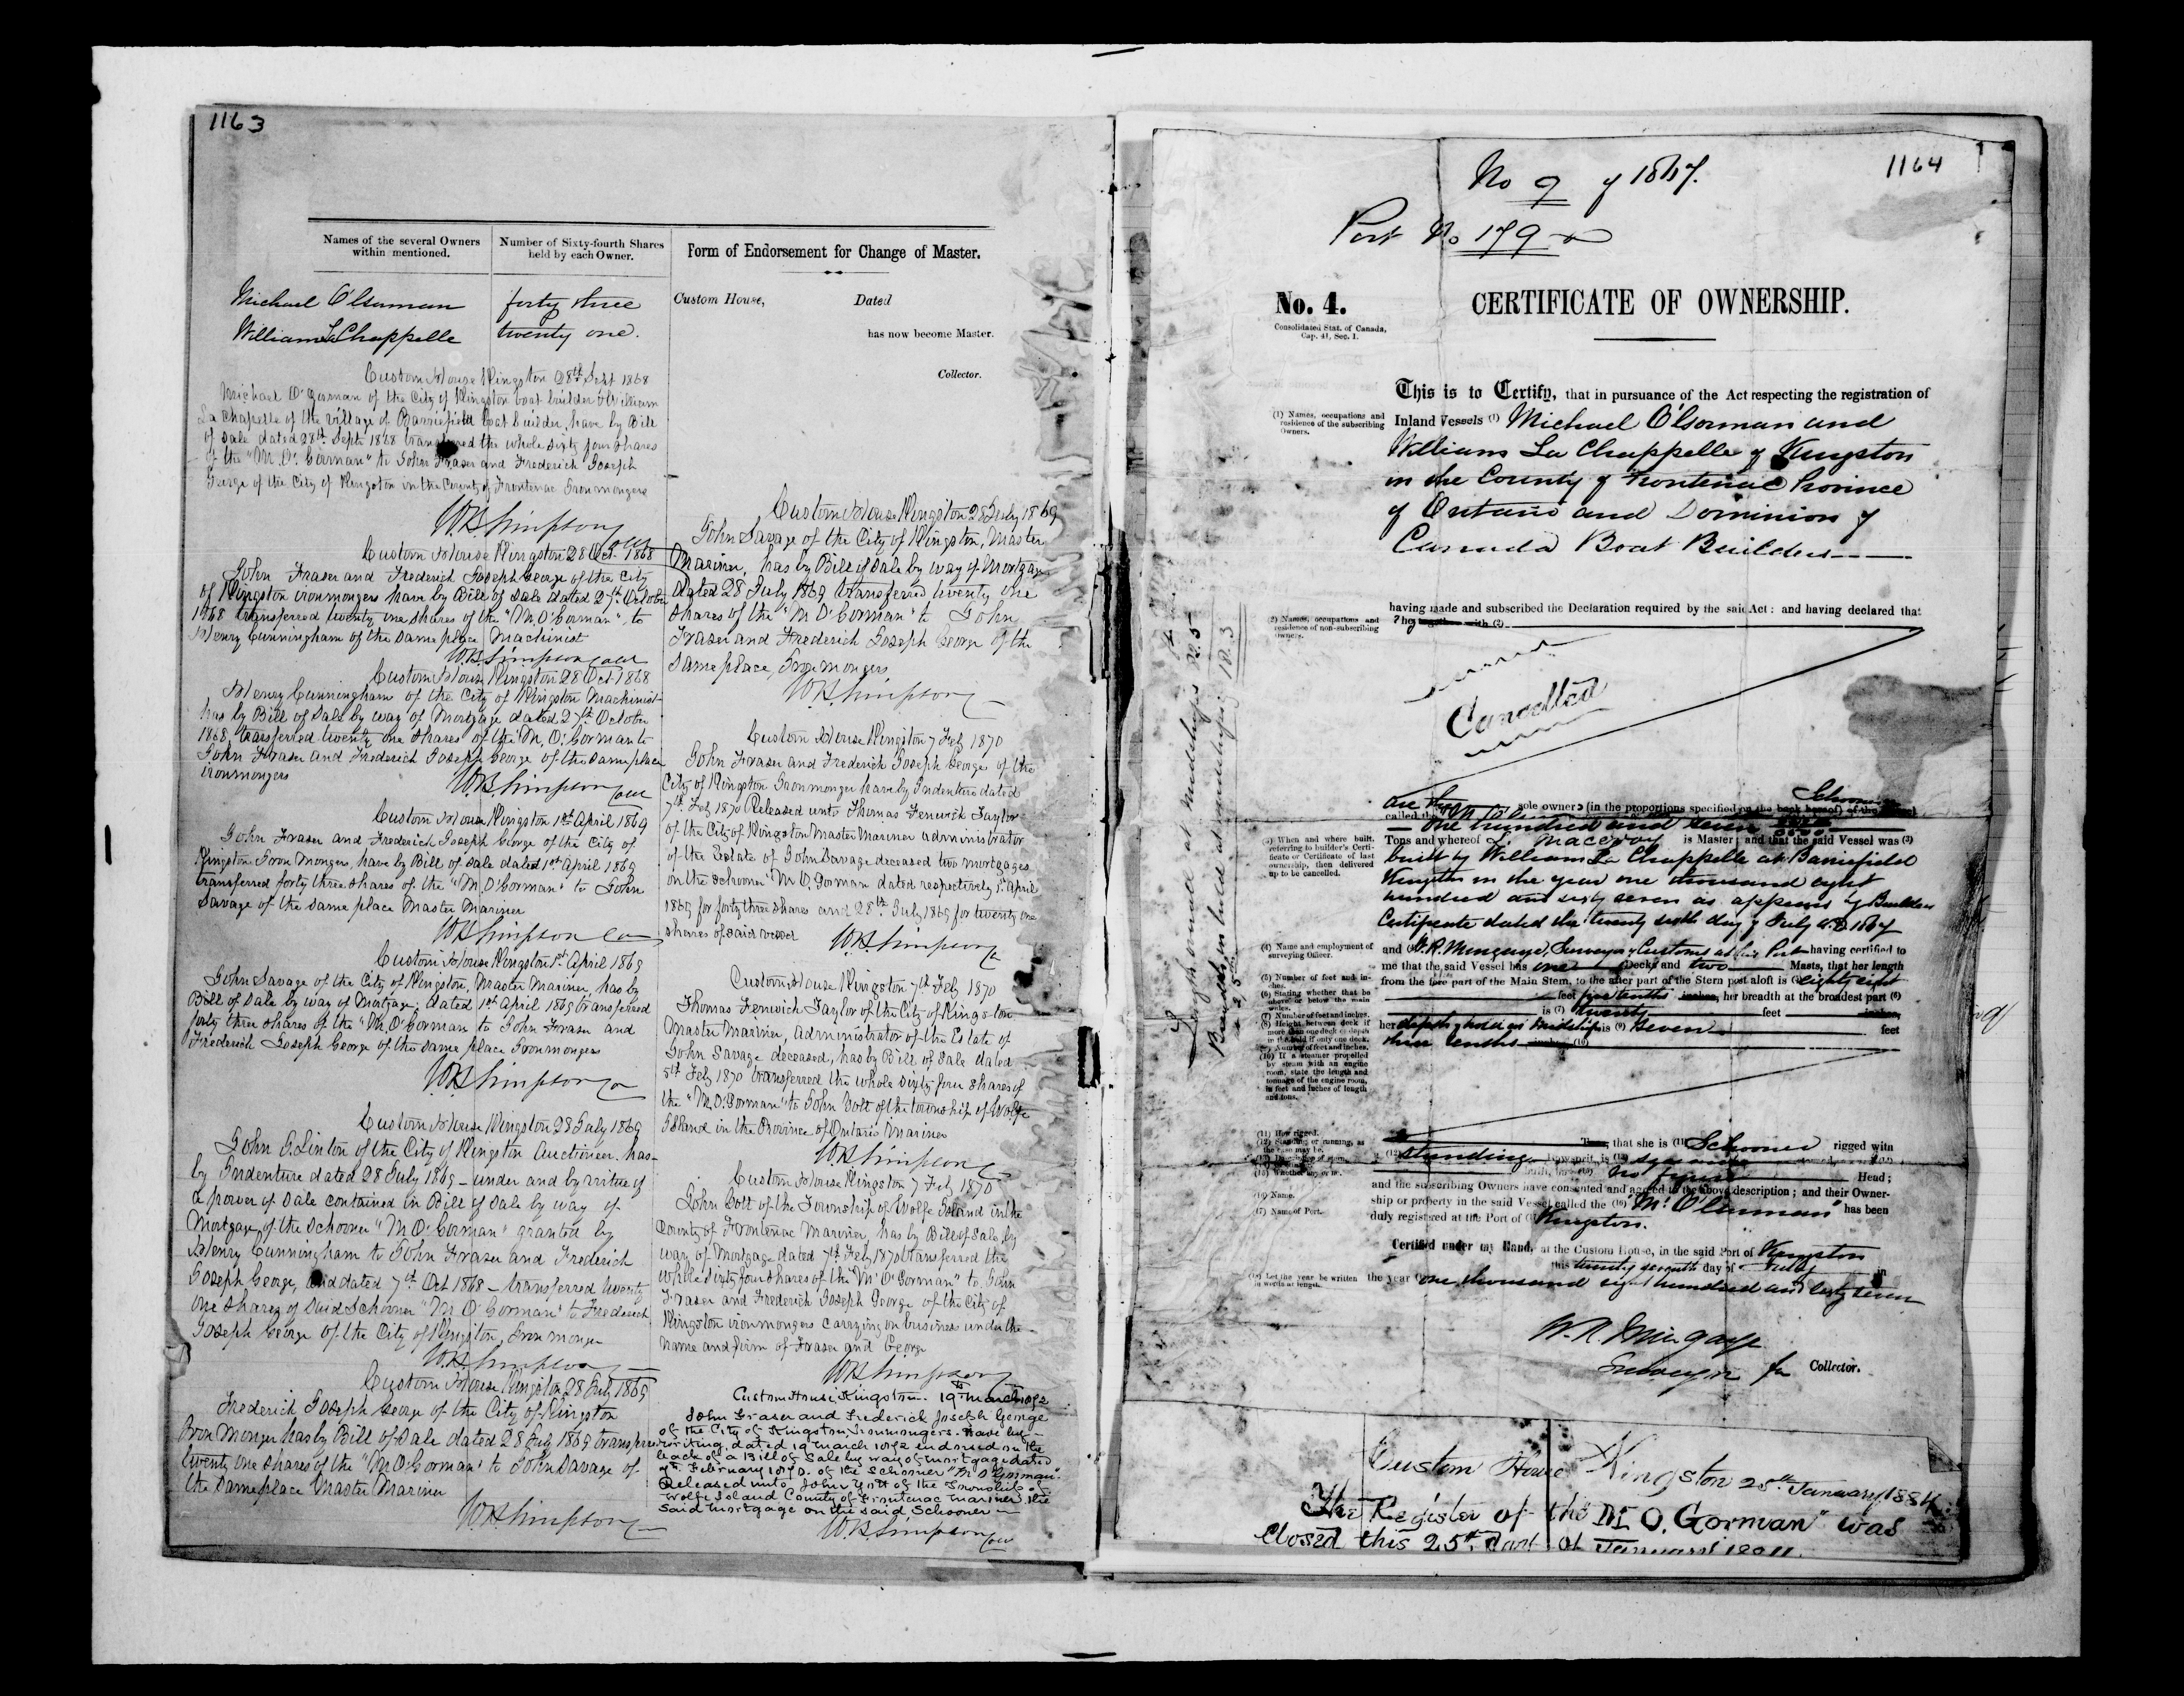 1163
Names of the several Owners
within mentioned.
Number of Sixty-fourth Shares
held by each Owner.
Form of Endorsement for Change of Master.
Michael O'Gorman forty three
William La Chappelle twenty one.
Custom House, Dated
has now become Master.
Collector.
Custom House Kingston 28th Sept 1868
Michael O'Gorman of the City of Kingston boat builder & William
La Chapelle of the Village of Barriefield boat builder, have by Bill
of Sale dated 28th Septr 1868 transferred the whole sixty four shares
of the "M. O'. Gorman" to John Fraser and Frederick Joseph
George of the City of Kingston in the County of Frontenac Ironmongers
WB Simpson
Coll
Custom House Kingston 28 Oct 1868
John Fraser and Frederick Joseph George of the City
of Kingston ironmongers have by Bill of Sale dated 27th October
1868 transferred twenty one shares of the "M. O'Gorman", to
Henry Cunningham of the same place Machinist
W.B. Simpson Coll
Custom House Kingston 28 Oct 1868
Henry Cunningham of the City of Kingston Machinist
has by Bill of Sale by way of Mortgage dated 27th October
1868, transferred twenty one shares of the M. O'. Gorman to
John Fraser and Frederick Joseph George of the same place
ironmongers
WB Simpson Coll
Custom House Kingston 1st April 1869
John Fraser and Frederick George of the City of
Kingston Iron Mongers, have by Bill of Sale dated 1st April 1869
transferred forty three shares of the "M. O'Gorman" to John
Savage of the same place Master Mariner
WB Simpson Co
Custom House Kingston 1st April 1869
John Savage of the City of Kingston, Master Mariner, has by
Bill of Sale by way of Mortgage, dated 1st April 1869 transferred
forty three shares of the "M. O'Gorman to John Fraser and
Frederick Joseph George of the same place Ironmongers
WB Simpson Co
Custom House Kingston 28 July 1869
John G. Linton of the City of Kingston Auctioneer, has
by Indenture dated 28 July 1869 - under and by virtue of
a power of Sale contained in Bill of Sale by way of
Mortgage, of the Schooner "M O' Gorman" granted by
Henry Cunningham to John Fraser and Frederick
Joseph George, and dated 7th Oct 1868 - transferred twenty
one shares of said Schooner "M. O' Gorman" to Frederick
Joseph George of the City of Kingston, Iron monger
WB Simpson
Custom House Kingston 28 July 1869
Frederick Joseph George of the City of Kingston
Iron Monger has by Bill of Sale dated 28 July 1869 transferred
twenty one shares of the "M O'Gorman" to John Savage of
the same place Master Mariner
WB Simpson
Custom House Kingston 28 July 1869
John Savage of the City of Kingston, Master
Mariner, has by Bill of Sale by way of Mortgage
dated 28 July 1869 transferred twenty one
shares of the "M O'Gorman" to John
Fraser and Frederick Joseph George of the
same place, Ironmongers
WB Simpson
Custom House Kingston 7 Feby 1870
John Fraser and Frederick Joseph George of the
City of Kingston Ironmonger have by Indenture dated
7th Feby 1870 Released unto Thomas Fenwick Taylor
of the City of Kingston Master Mariner administrator
of the Estate of John Savage deceased two mortgages
on the schooner "M O. Gorman dated respectively 1st April
1869 for forty three shares and 28th July 1869 for twenty one
shares of said vessel WB Simpson
Custom House Kingston 7th Feby 1870
Thomas Fenwick Taylor of the City of Kingston
Master Mariner, Administrator of the Estate of
John Savage deceased, has by Bill of Sale dated
5th Feby 1870 transferred the whole sixty four shares of
the "M. O'. Gorman" to John Yott of the township of Wolfe
Island in the Province of Ontario Mariner
WB Simpson
Custom House Kingston 7 Feby 1870
John Yott of the Township of Wolfe Island in the
County of Frontenac Mariner, has by Bill of Sale by
way of Mortgage dated 7th Feby 1870 transferred the
whole sixty four shares of the "M' O' Gorman" to John
Fraser and Frederick Joseph George of the City of
Kingston ironmongers carrying on business under the
name and firm of Fraser and George
WB Simpson
Custom House Kingston. 19th March 1872
John Fraser and Frederick Joseph George
of the City of Kingston, Ironmongers. have by
writing dated 19 March 1872 endorsed on the
back of a Bill of Sale by way of mortgage dated
7th February 1870. of the Schooner "M. O'Gorman".
Released unto John Yott of the Township of
Wolfe Island County of Frontenac mariner, the
said mortgage on the said Schooner
WB Simpson
Coll
1164
No 9 of 1867.
Port No 179
No. 4.
Consolidated Stat. of Canada,
Cap. 41, Sec. 1.
CERTIFICATE OF OWNERSHIP.
This is to Certify, that in pursuance of the Act respecting the registration of
(1) Names, occupations and
residence of the subscribing
Owners.
Inland Vessels (1) Michael O'Gorman and
William La Chappelle of Kingston
in the County of Frontenac Province
of Ontario and Dominion of
Canada Boat Builders
having made and subscribed the Declaration required by the said Act: and having declared that
2) Names, occupations and
residence of non-subscribing
Owners.
They together with (2)
Cancelled
Length round at midships 32.5
Breadth in hold at midships 18.3
are the sole owners (in the proportions specified on the back hereof) of the Schooner
called the
one hundred and seven
(3) When and where built.
referring to builder's Certi-
ficate or Certificate of last
ownership, then delivered
up to be cancelled.
Tons and whereof is Master; and that the said Vessel was (3)
built by William La Chappelle at Barriefield
Kingston in the year one thousand eight
hundred and sixty seven as appears by Builders
Certificate dated the twenty sixth day of July A.D 1867
(4) Name and employment of
surveying Officer.
and (4) W.R. Mingaye, Surveyor of Customs at this Port having certified to
me that the said Vessel has one Decks and two Masts, that her length
(5) Number of feet and in-
ches.
from the fore part of the Main Stem, to the after part of the Stern post aloft is (5) eighty eight
(6) Stating whether that be
above or below the main
wales.
feet five tenths inches, her breadth at the broadest part (6)
(7) Number of feet and inches.
is (7) twenty feet inches,
(8) Height between deck if
more than one deck or depth
in the hold if only one deck.
her depth of hold at Midships is (9) Seven feet
(9) Number of feet and inches.
three tenths inches (10)
(10) If a steamer propelled
by steam with an engine
room, state the length and
tonnage of the engine room,
in feet and inches of length
and tons.
(11) How rigged.
(12) Standing or running, as
the case may be.
Tons, that she is (11) Schooner rigged with
(12) standing bowsprit, is (13) square
(15) Whether any or no.
no figure Head;
and the subscribing Owners have consented and agreed to the above description; and their Owner-
(16) Name.
ship or property in the said Vessel called the (16) "M. O'Gorman" has been
(17) Name of Port.
duly registered at the Port of (17) Kingston.
Certified under my Hand, at the Custom House, in the said Port of Kingston
this twenty seventh day of July in
(18) Let the year be written
in words at length.
the year (18) one thousand eight hundred and sixty seven
W. R. Mingaye
Surveyor for Collector.
Custom House Kingston 25th January 1884
The Register of the "M O. Gorman" was
closed this 25th day of January